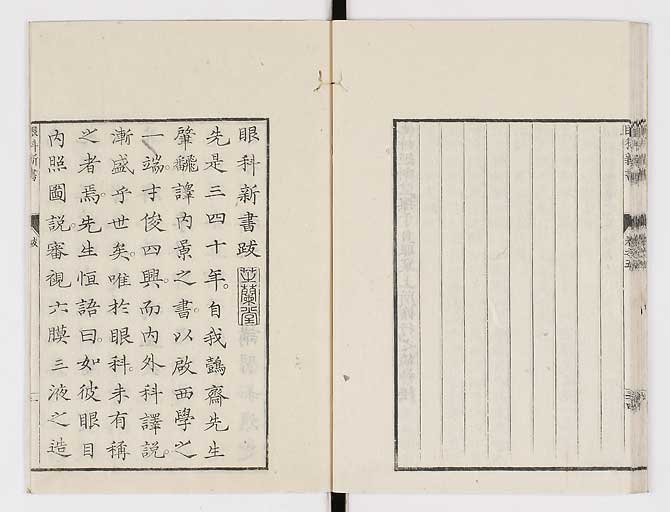 眼科新書跋 芝蘭堂
先是三四十年。自我鷧齋先生
肇飜譯内景之書。以啟西學之
一端。才俊四興。而内外科譯説。
漸盛乎世矣。唯於眼科。未有稱
之者焉。先生恒語曰。如彼眼目
内照圖説。審視六膜三液之造
眼科新書 跋